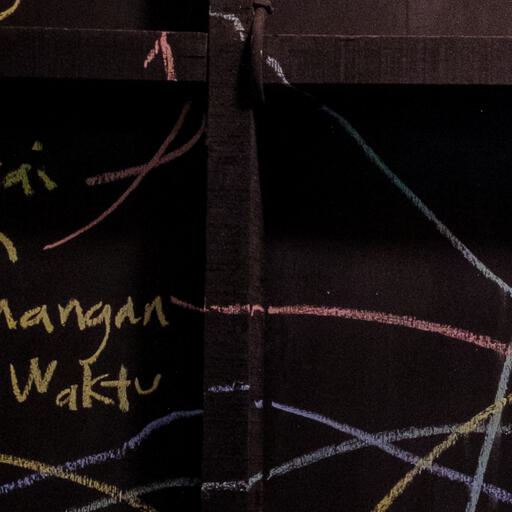 ai
n
nangan
Waktu